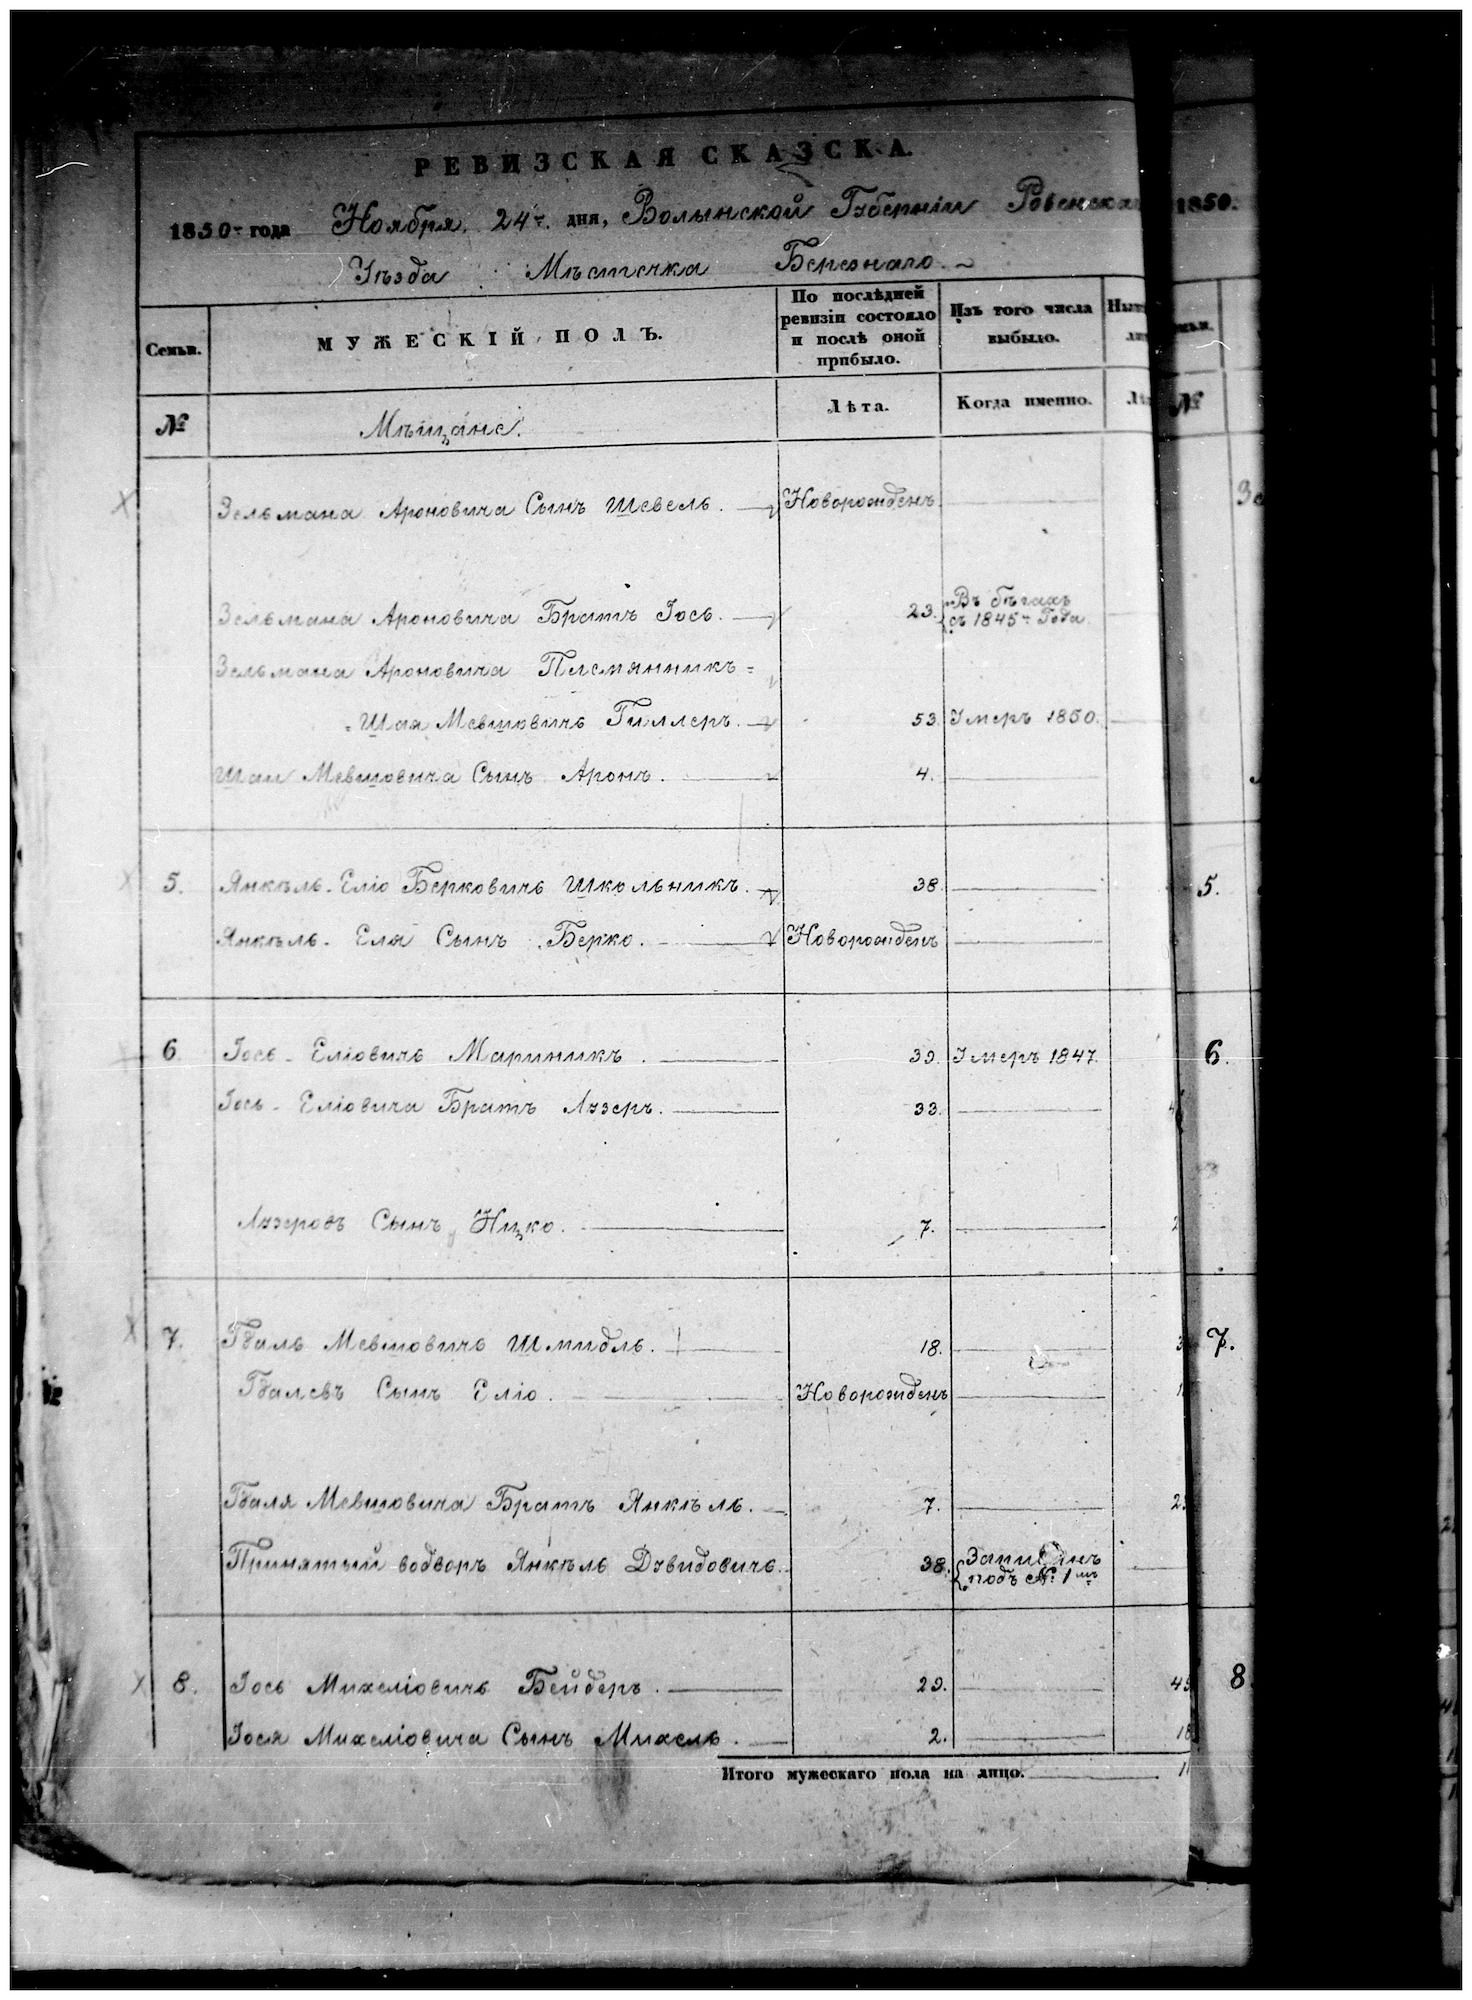 РЕВИЗСКАЯ СКАЗСКА.
1850-г года Ноября 24-г дня, Волынской Губернiи Ровенска
Уѣзда Мѣстечка Березнаго.
Семьи.
МУЖЕСКIЙ ПОЛЪ.
По послѣдней ревизiи состояло и послѣ оной прибыло.
Изъ того числа выбыло.
№
Мѣщане.
Лѣта.
Когда именно.
Зельмана Ароновича Сынъ Шевель. Новорожденъ
Зельмана Ароновича Братъ Iось. 23. Въ бѣгахъ
съ 1845-г Года
Зельмана Ароновича Племянникъ =
= Шая Мевшовичь Гиллеръ. 53. Умеръ 1850.
Шаи Мевшовича Сынъ Аронъ. 4.
5. Янкѣль-Елiо Берковичь Школьникъ. 38. 5.
Янкѣль-Еля Сынъ Берко. Новорожденъ
6. Iось-Елiовичь Мариникъ. 39. Умеръ 1847. 6.
Iось-Елiовича Братъ Лузеръ. 33.
Лузеровъ Сынъ Ицко. 7.
7. Гдаль Мевшовичь Шмидль. 18. 7.
Гдалевъ Сынъ Елiо. Новорожденъ
Гдаля Мевшовича Братъ Янкѣль. 7.
Принятый водворъ Янкѣль Дувидовичь. 38. Записанъ
подъ № 1мъ
8. Iось Михелiовичь Бейдеръ. 29. 8.
Iося Михелiовича Сынъ Михель. 2.
Итого мужескаго пола на лицо.
1850.
№